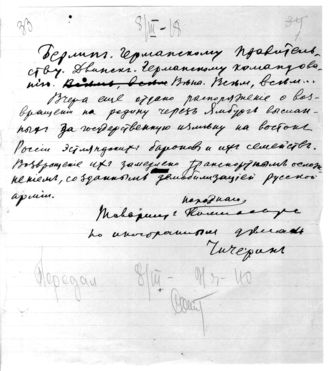 33 8/III - 18
Берлин. Германскому правитель-
ству. Двинск. Германскому командова-
нию. Вена. Всем, всем...
Вчера ещё отдано распоряжение о воз-
вращении на родину через Ямбург выслан-
ных за государственную измену на восток
России эстляндских баронов и их семейств.
Возвращение их замедлено транспортным ослож-
нением, созданным демобилизацией русской
армии.
народный
Товарищ Комиссара
по иностранным делам
Чичерин
Передал 8/III -